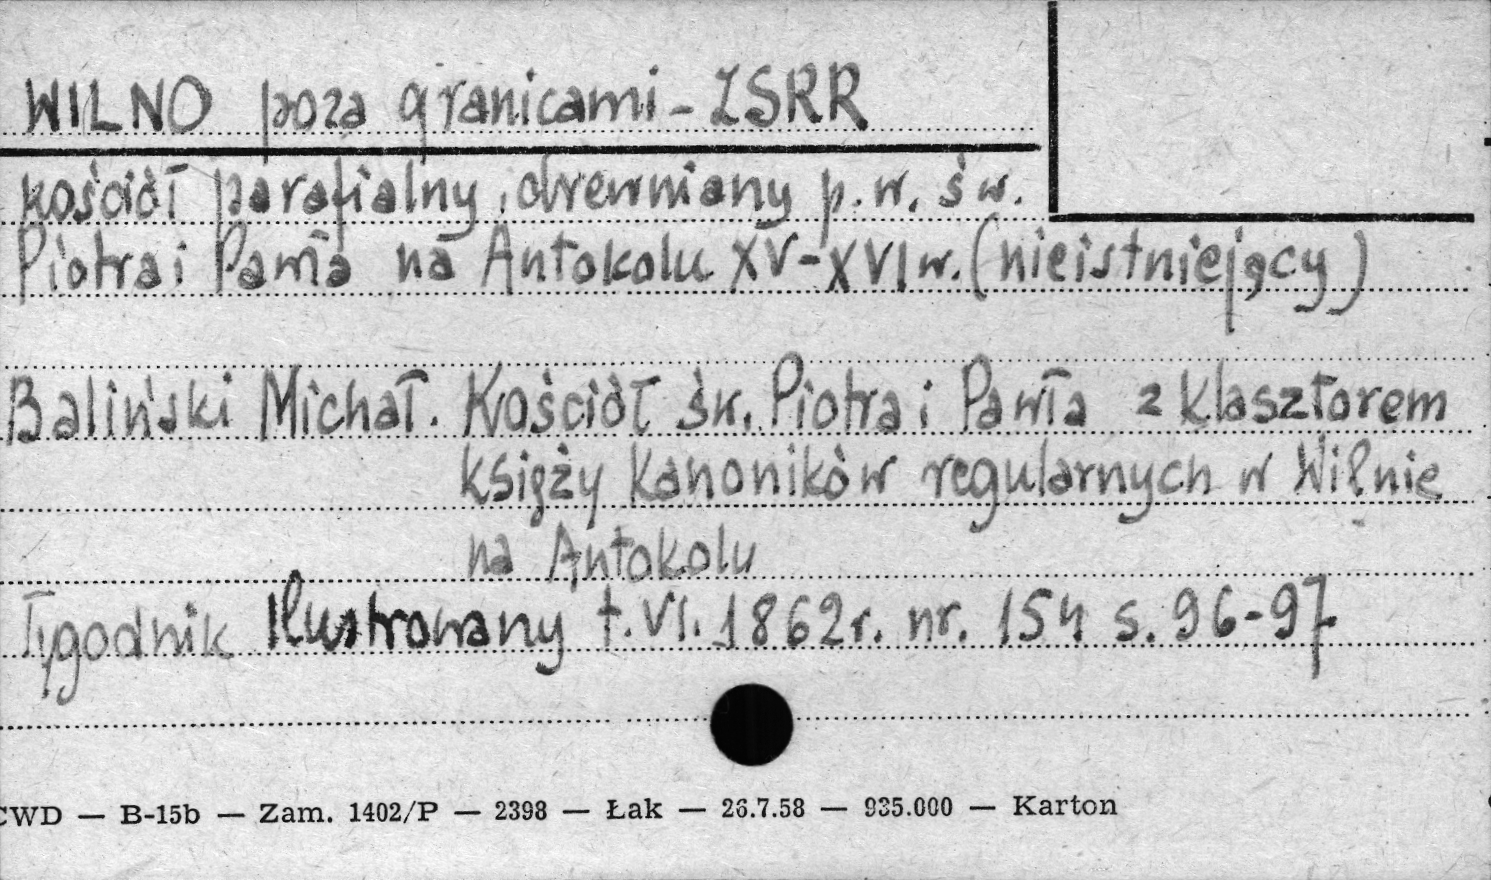 WILNO poza granicami - ZSRR
kościół parafialny, drewniany p.w. św.
Piotra i Pawła na Antokolu XV-XVI w. (nieistniejący)
Baliński Michał. Kościół św. Piotra i Pawła z klasztorem
księży kanoników regularnych w Wilnie
na Antokolu
Tygodnik Ilustrowany t. VI. 1862 r. nr. 154 s. 96-97
CWD — B-15b — Zam. 1402/P — 2398 — Łak — 26.7.58 — 935.000 — Karton